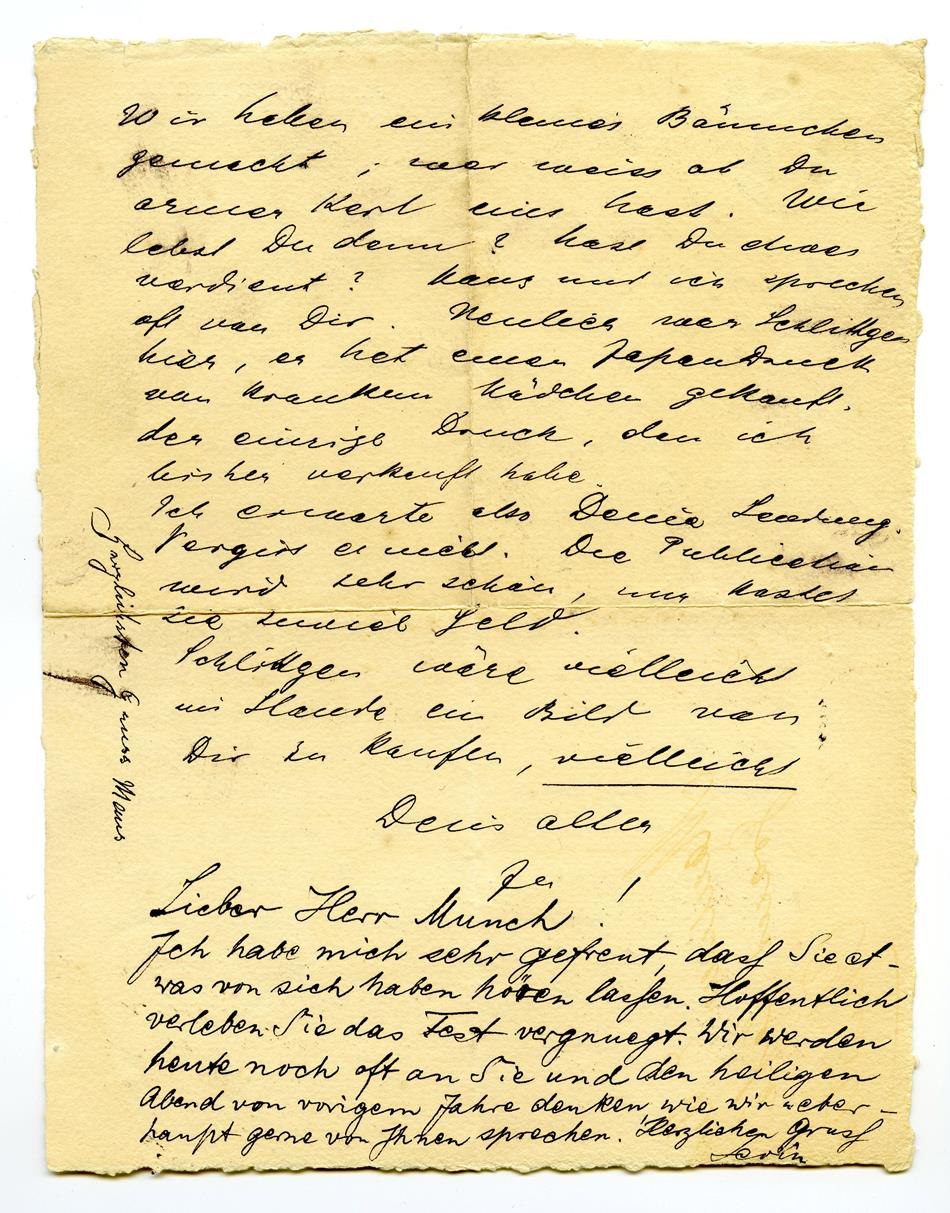 Wir haben ein kleines Bäumchen
gemacht, wer weiss ob Du
armer Kerl eins hast. Wie
lebst Du denn? hast Du etwas
verdient? Maus und ich sprechen
oft von Dir. Neulich war Schlittgen
hier, er hat einen Japandruck
von Kranken Mädchen gekauft.
der einzige Druck, den ich
bisher verkauft habe
Ich erwarte also Deine Sendung.
Vergiss es nicht. Die Publication
wird sehr schön, nur kostet
sie zuviel Geld.
Schlittgen wäre vielleicht
im Stande ein Bild von
Dir zu kaufen, vielleicht
Dein alter
Lieber Herr Munch!
Ich habe mich sehr gefreut, dass Sie et-
was von sich haben hören lassen. Hoffentlich
verleben Sie das Fest vergnuegt. Wir werden
heute noch oft an Sie und den heiligen
Abend von vorigem Jahre denken, wie wir ueber-
haupt gerne von Ihnen sprechen. Herzlichen Gruss
Herzlichsten Gruss Maus